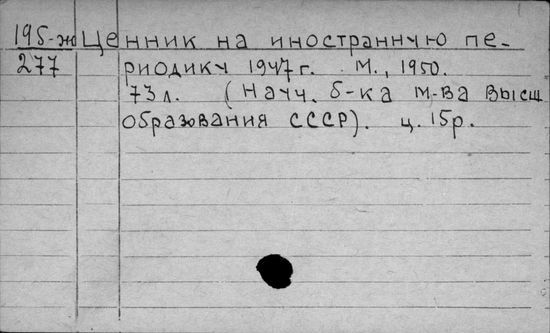 195-ж Ценник на иностранную пе-
277 риодику 1947 г. М., 1950.
73 л. (Науч. б-ка м-ва высш
образования СССР). ц. 15 р.